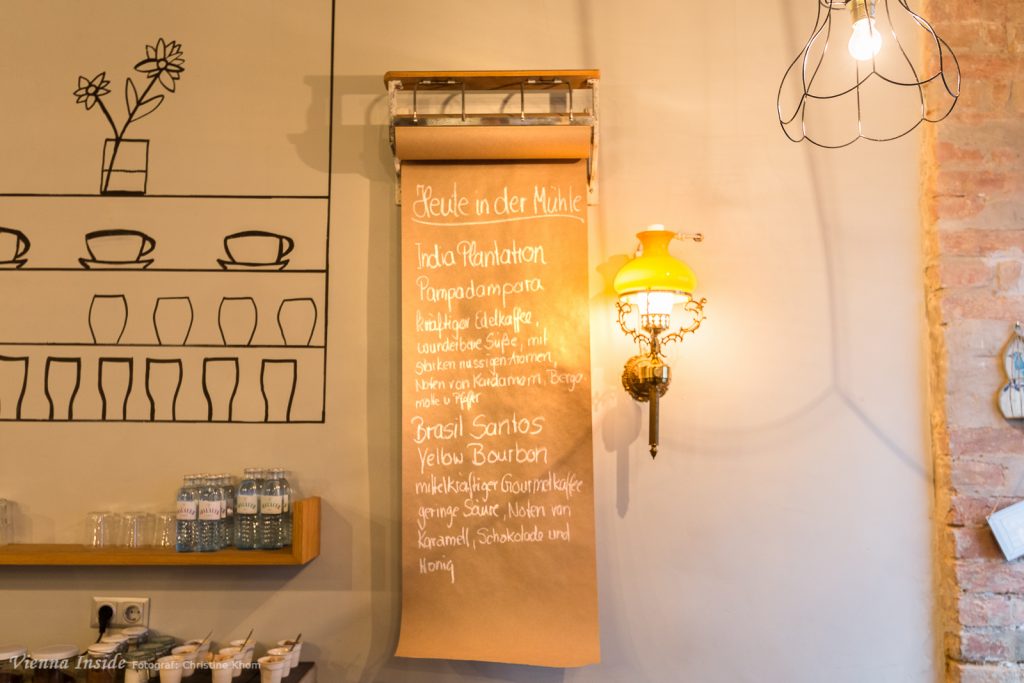 Heute in der Mühle
India Plantation
Pampadampara
kräftiger Edelkaffee,
wunderbare Süße, mit
starken nussigen Aromen,
Noten von Kardamom, Berga
motte u Pfeffer
Brasil Santos
Yellow Bourbon
mittelkräftiger Gourmetkaffee
geringe Säure, Noten von
Karamell, Schokolade und
Honig
Vienna Inside Fotograf: Christine Khom